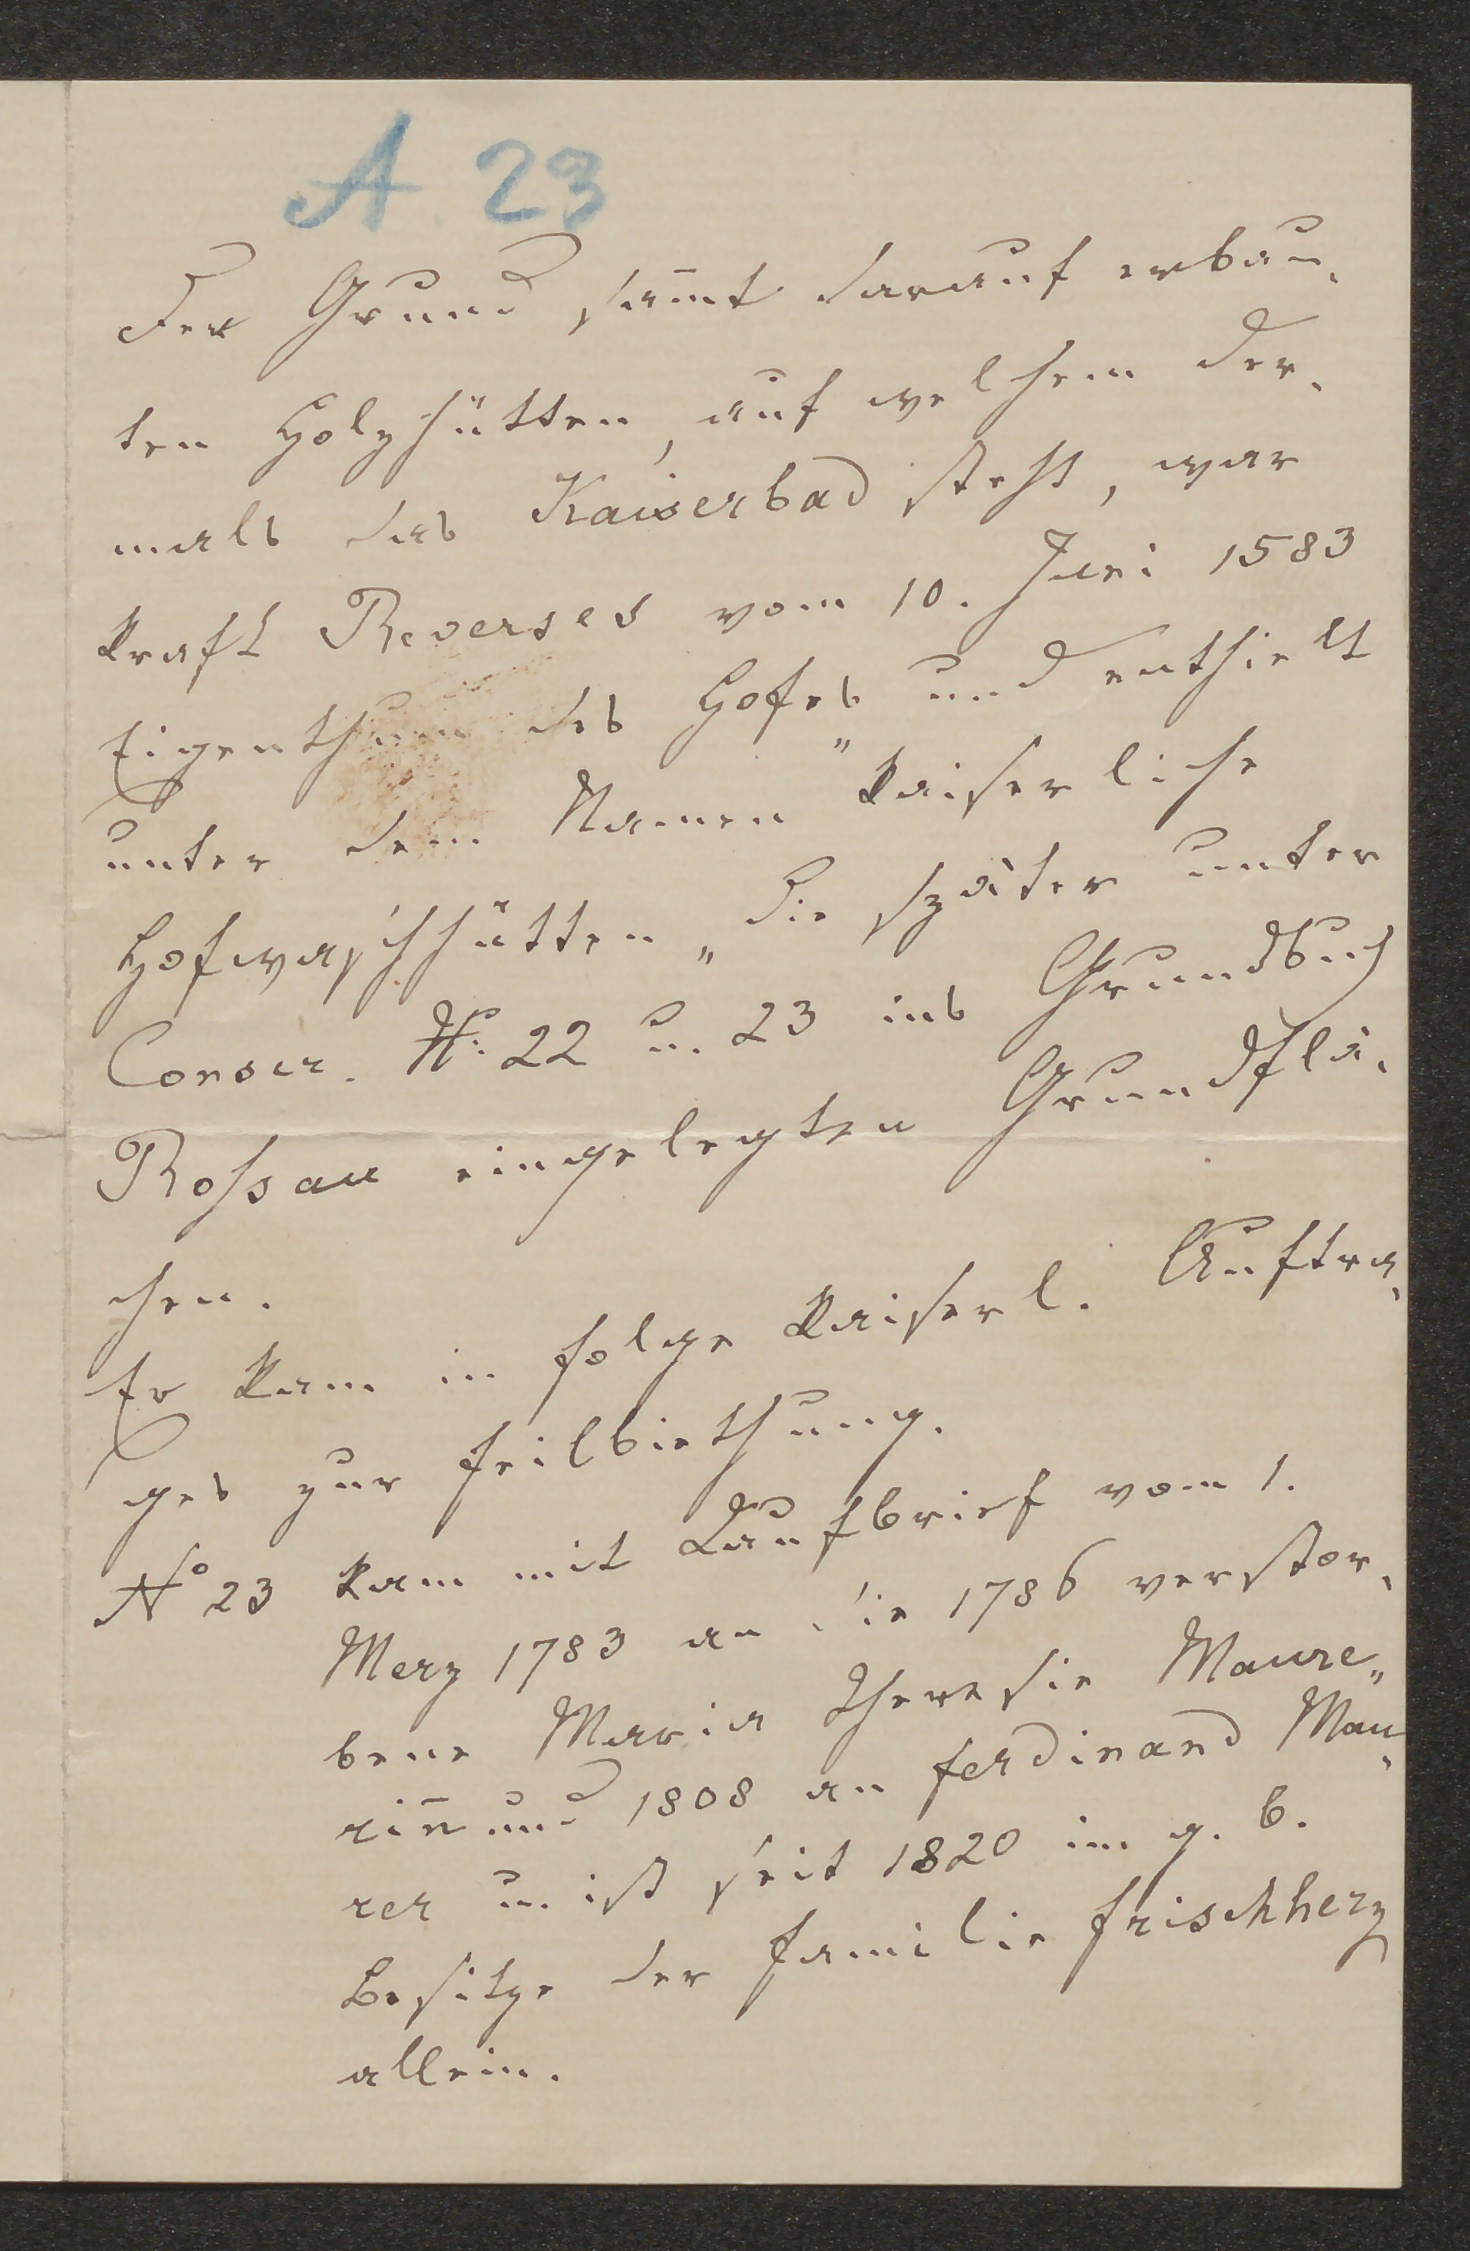 A. 23
Der Grund sam̅t darauf erbau-
ten Holzhütten, auf welchem der-
mals das Kaiserbad steht, war
kraft Reverses vom 10. Juni 1583
Eigenthum des Hofes und enthielt
unter dem Namen "kaiserliche
Hofwaschhütten„ die später unter
Conscr. No: 22 u. 23 ins Grundbuch
Rossau eingelegten Grundflä-
chen.
Er kam in Folge kaiserl. Auftra-
ges zur Feilbiethung.
No 23 kam mit Kaufbrief vom 1.
Merz 1783 an die 1786 verstor-
bene Maria Theresie Maure„
rin̅ und 1808 an Ferdinand Mau-
rer u. ist seit 1820 im g. b.
Besitze der Familie Frischherz
allein.